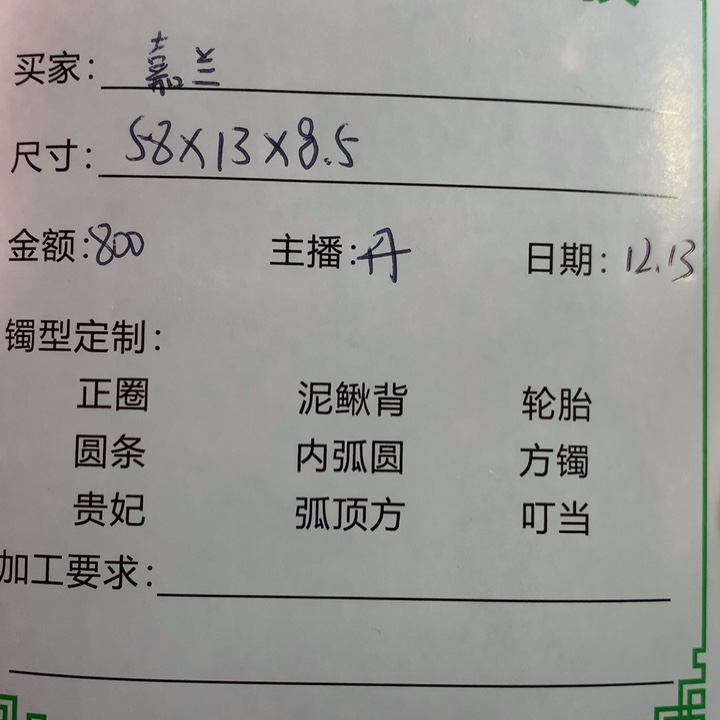 买家：嘉兰
尺寸：58×13×8.5
金额：800 主播：丹 日期：12.13
镯型定制：
正圈 泥鳅背 轮胎
圆条 内弧圆 方镯
贵妃 弧顶方 叮当
加工要求：